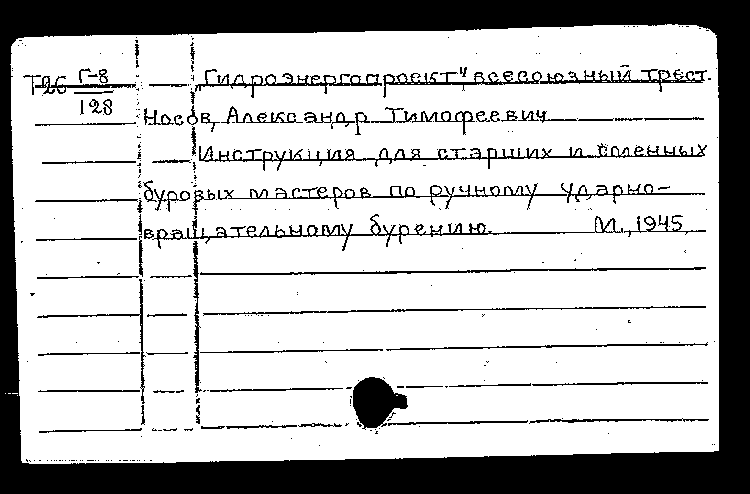 Т26 Г-8 „Гидроэнергопроект" всесоюзный трест.
128
Носов, Александр Тимофеевич
Инструкция для старших и сменных
буровых мастеров по ручному ударно-
вращательному бурению. М., 1945